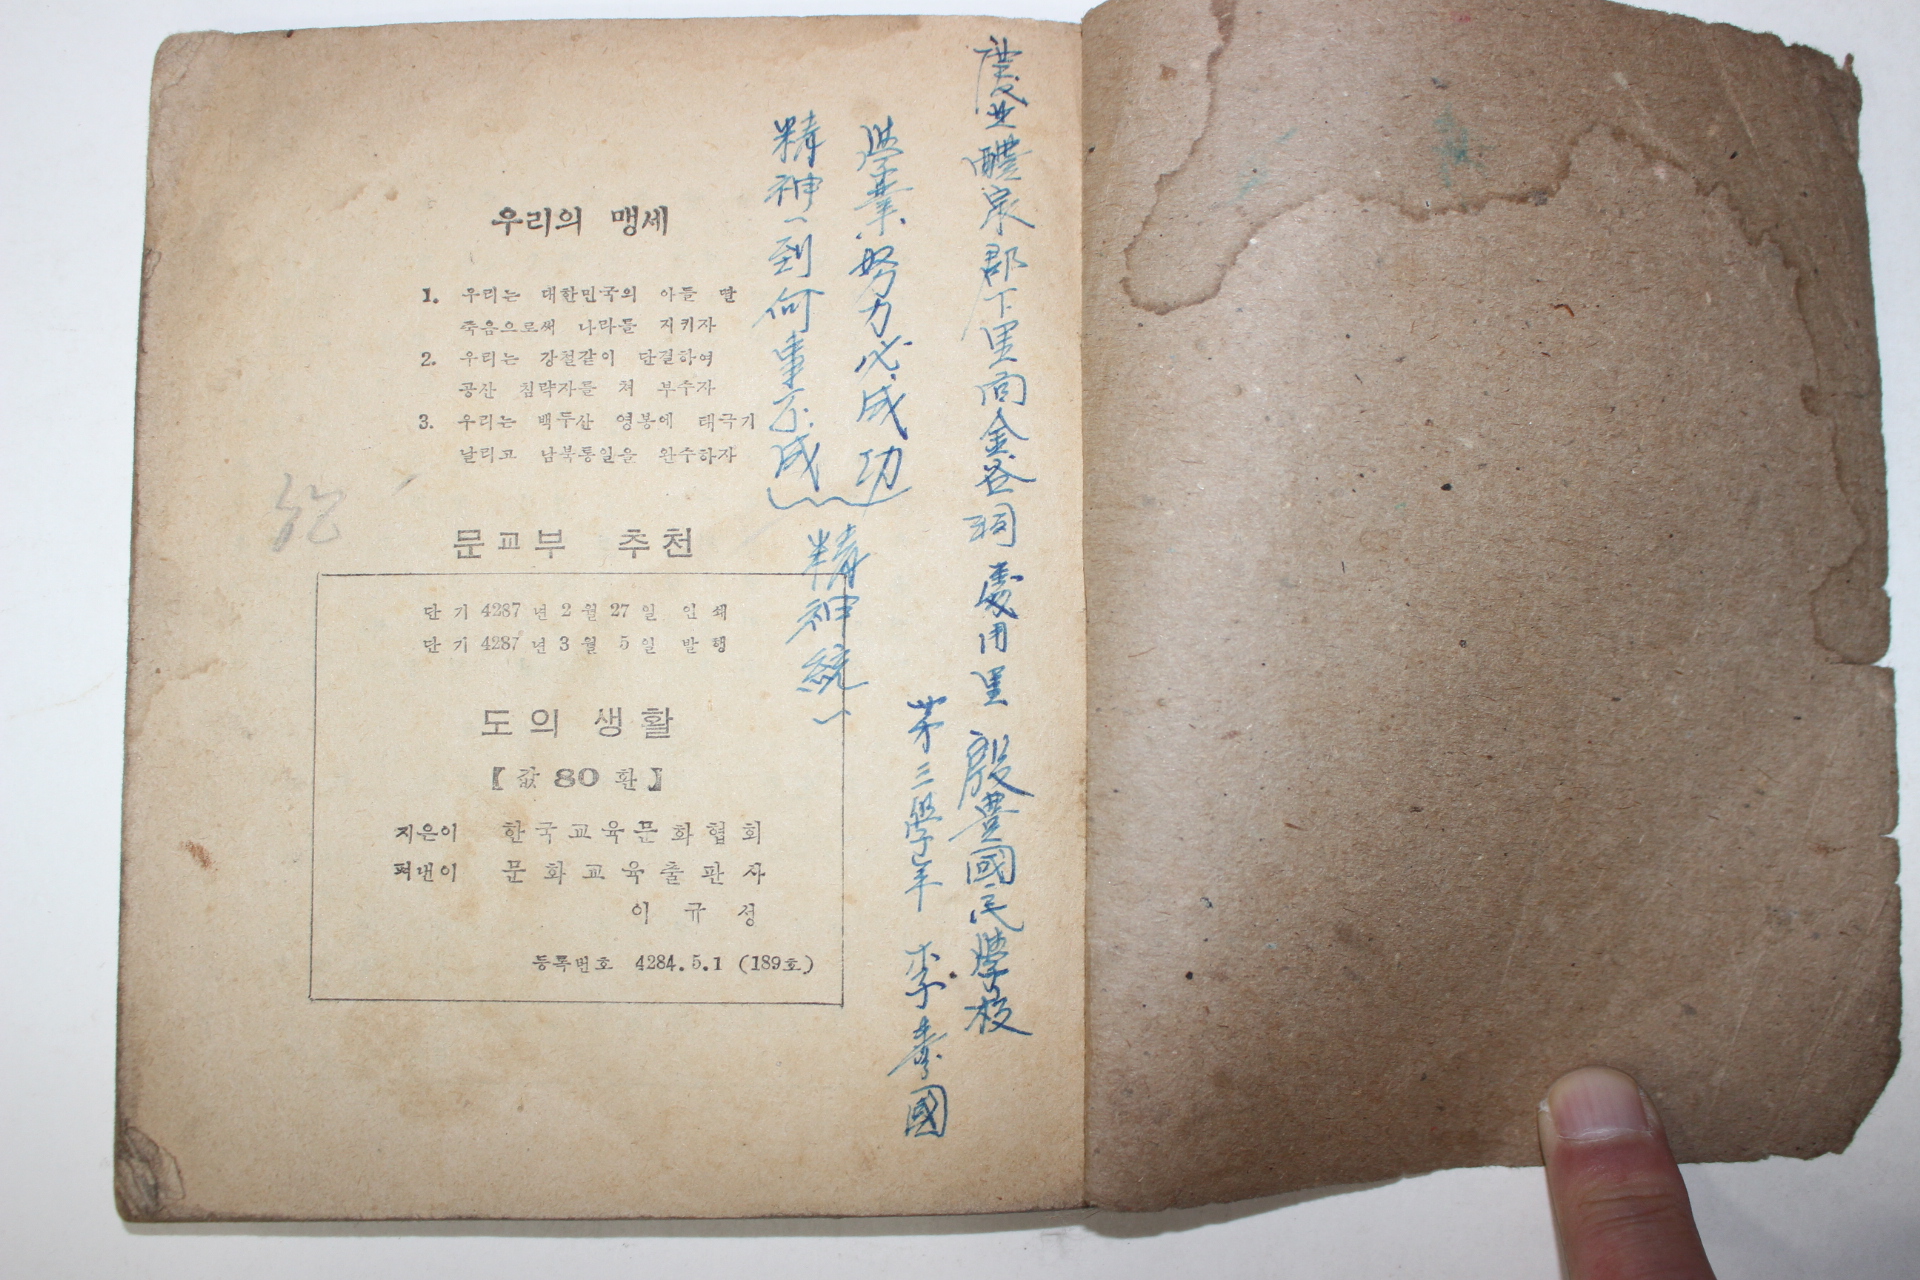 우리의 맹세
1. 우리는 대한민국의 아들 딸
죽음으로써 나라를 지키자
2. 우리는 강철같이 단결하여
공산 침략자를 쳐 부수자
3. 우리는 백두산 영봉에 태극기
날리고 남북통일을 완수하자
문교부 추천
단기 4287년 2월 27일 인쇄
단기 4287년 3월 5일 발행
도의 생활
【값 80환】
지은이 한국교육문화협회
펴낸이 문화교육출판사
이규성
등록번호 4284.5.1 (189호)
慶北醴泉郡下里面金谷洞 用里 殷豊國民學校
第三學年 李 國
學業努力必成功
精神一到何事不成
精神統一